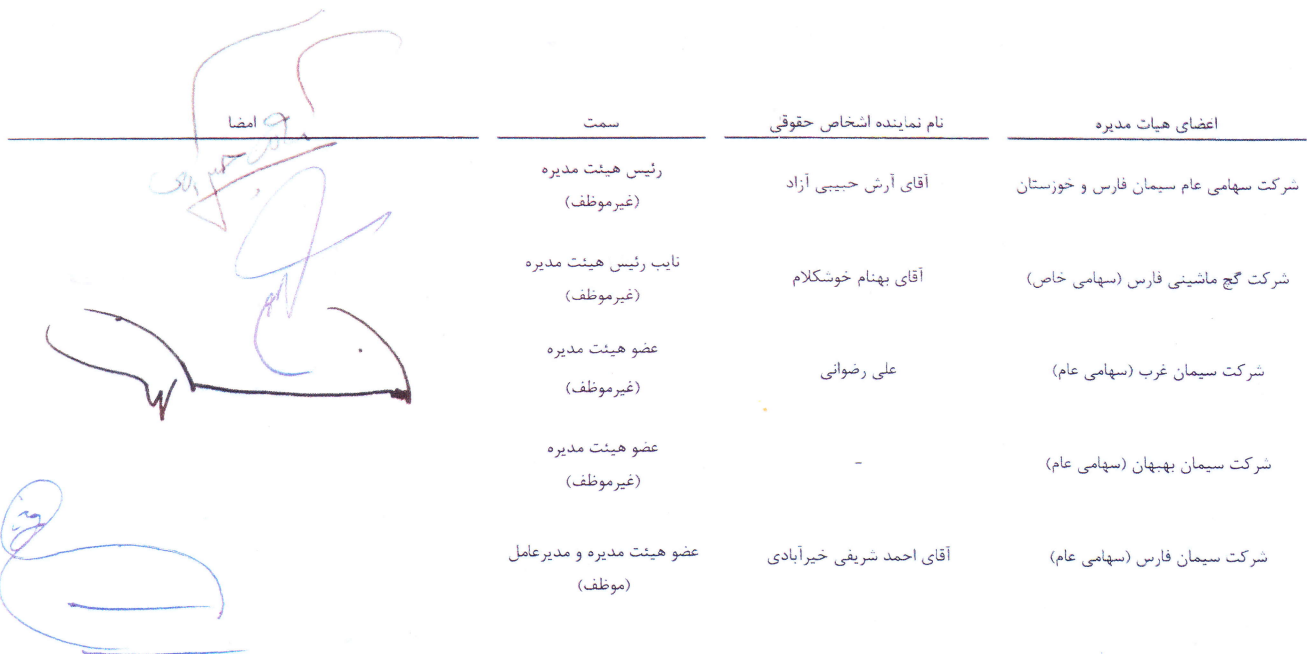 اعضای هیات مدیره	نام نماینده اشخاص حقوقی	سمت	امضا
شرکت سهامی عام سیمان فارس و خوزستان	آقای آرش حبیبی آزاد	رئیس هیئت مدیره
(غیرموظف)
شرکت گچ ماشینی فارس (سهامی خاص)	آقای بهنام خوشکلام	نایب رئیس هیئت مدیره
(غیرموظف)
شرکت سیمان غرب (سهامی عام)	علی رضوانی	عضو هیئت مدیره
(غیرموظف)
شرکت سیمان بهبهان (سهامی عام)	-	عضو هیئت مدیره
(غیرموظف)
شرکت سیمان فارس (سهامی عام)	آقای احمد شریفی خیرآبادی	عضو هیئت مدیره و مدیرعامل
(موظف)